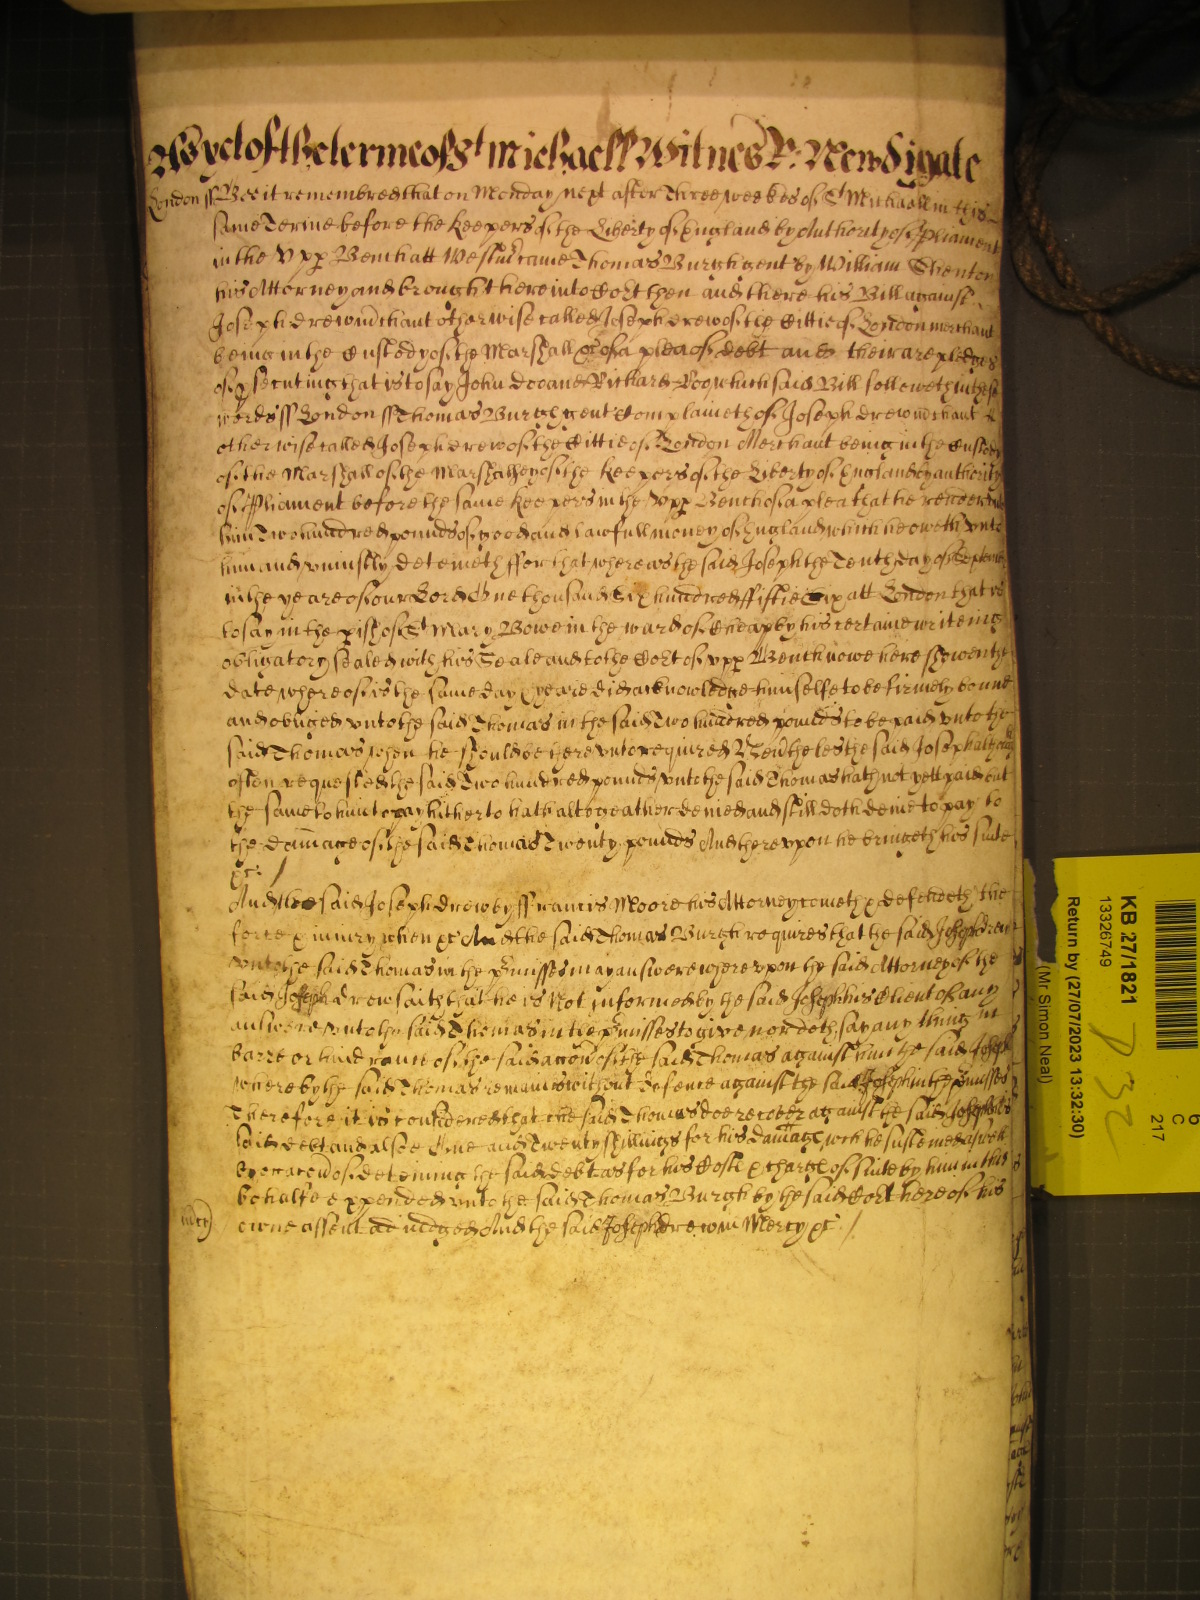 As yet of the terme of St Michaell Witnes R: Newdigate
London ss Bee it remembred that on Monday next after Three weekes of St Michaell in this
same Terme before the Keepers of the Liberty of England by Authority of Pliament
in the Vpp Bench att Westmr came Thomas Burgh gent by William Shenton
his Attorney and brought here into Cort then and there his Bill against
Joseph drew mchant otherwise called Joseph drew of the Cittie of London merchant
being in the Custody of the Marshall &c of a plea of debt and their are pledges
of psecuting that is to say John dooe and Richard Roo which said Bill followeth in these
words ss London ss Thomas Burgh gent Complaineth of Joseph drew mchant
otherwise called Joseph drew of the Cittie of London Merchant being in the Custody
of the Marshall of the Marshalsey of the Keepers of the Liberty of England by authority
of Pliament before the same Keepers in the Vpp Bench of a plea that he render vnto
him Two hundred pounds of good and lawfull money of England which he oweth vnto
him and vniustly deteineth ffor that whereas the said Joseph the Tenth day of September
in the yeare of our Lord One thousand Six hundred ffiftie Six att London that is
to say in the pish of St Mary Bowe in the ward of Cheap by his certaine writeing
obligatory sealed with his Seale and to the Cort of vpp Bench nowe here shewen the
date whereof is the same day & yeare did acknowledge himselfe to be firmely bound
and obliged vnto the said Thomas in the said Two hundred pounds to be paid vnto the
said Thomas when he should be herevnto required Neutheles the said Joseph although
often requested the said Two hundred pounds vnto the said Thomas hath not yett paid but
the same to him to pay hitherto hath altogeather denied and still doth denie to pay to
the damage of the said Thomas Twenty pounds And therevpon he bringeth his suite
&c: /
And the said Joseph Drew by ffrancis Moore his Attorney cometh & defendeth the
force & iniury when &c And the said Thomas Burgh requires that the said Joseph drew
vnto the said Thomas in the pmisses may answere wherevpon the said Attorney of the
said Joseph drew saith that he is Not informed by the said Joseph his Client of any
answere vnto the said Thomas in the pmisses to give nor doth say any thing in
barre or hindrance of the said accon of the said Thomas against him the said Joseph
whereby the said Thomas remaines without defence against the said Joseph in the pmisses
Therefore it is considered that the said Thomas doe recover against the said Joseph his
said debt and alsoe One and Twenty shillings for his damage wch he susteined aswell
by occacon of deteining the said debt as for his Costs & charges of suite by him in this
behalfe expended vnto the said Thomas Burgh by the said Cort here of his
mcy owne assent adiudged And the said Joseph drew in Mercy &c /
KB 27/1821
13326749
Return by (27/07/2023 13:32:30)
(Mr Simon Neal)
6
C
217